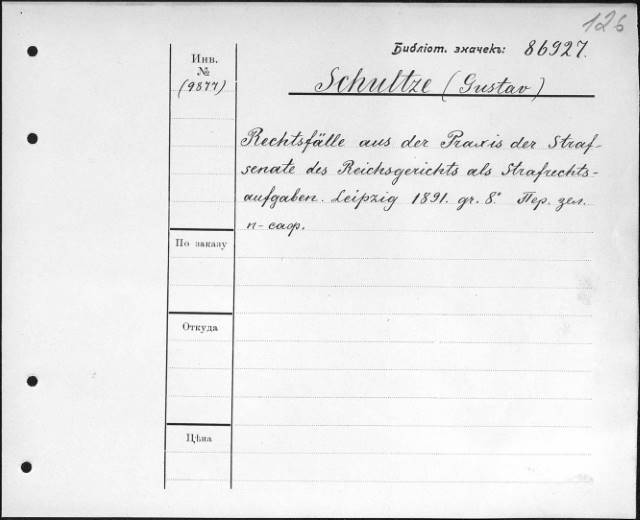 126
Библіот. значекъ: 86927.
Инв.
№
(9877)
Schultze (Gustav)
Rechtsfälle aus der Praxis der Straf-
senate des Reichsgerichts als Strafrechts-
aufgaben. Leipzig 1891. gr. 8° Пер. зел.
п-саф.
По заказу
Откуда
Цѣна